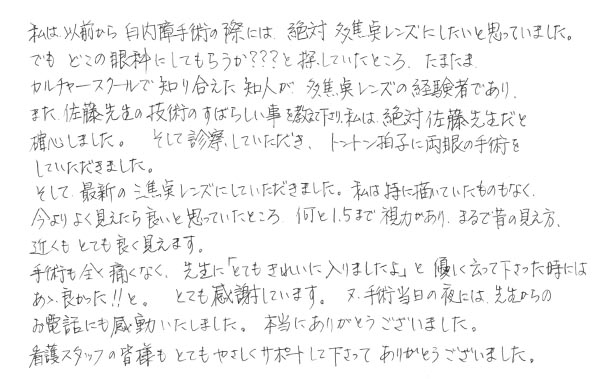 私は、以前から 白内障手術の際には、絶対 多焦点レンズにしたいと思っていました。
でも どこの眼科にしてもらうか???と探していたところ、たまたま
カルチャースクールで知り合えた知人が 多焦点レンズの経験者であり、
また、佐藤先生の技術のすばらしい事を教えて下さり、私は、絶対佐藤先生だと
確心しました。 そして診察していただき、トントン拍子に両眼の手術を
していただきました。
そして、最新の三焦点レンズにしていただきました。私は特に描いていたものもなく、
今よりよく見えたら良いと思っていたところ、何と1.5まで視力があり、まるで昔の見え方、
近くも とても良く見えます。
手術も全く痛くなく、先生に「とてもきれいに入りましたよ」と優しく云って下さった時には
あゝ良かった!!と。 とても感謝しています。 又、手術当日の夜には、先生からの
お電話にも感動いたしました。本当にありがとうございました。
看護スタッフの皆様も とてもやさしくサポートして下さって ありがとうございました。